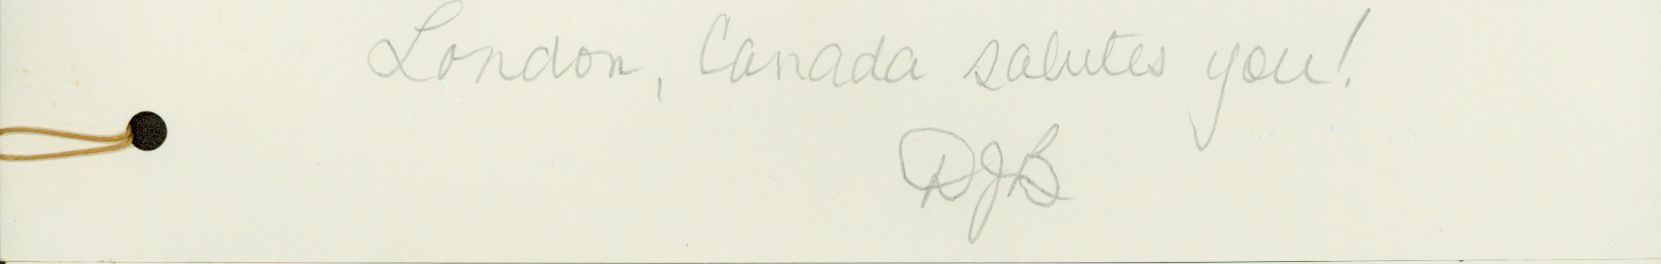 London, Canada salutes you!
DJB